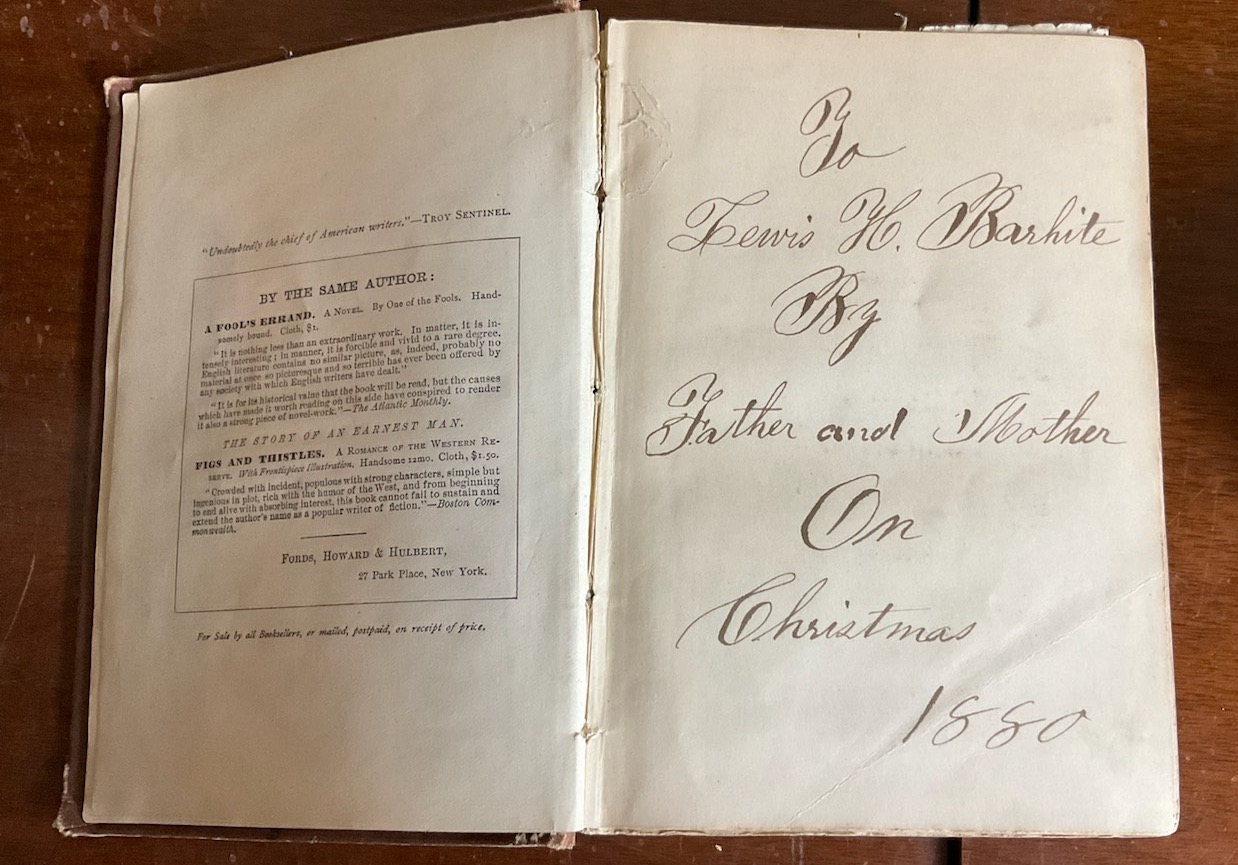 "Undoubtedly the chief of American writers."—TROY SENTINEL.
BY THE SAME AUTHOR:
A FOOL'S ERRAND. A NOVEL. By One of the Fools. Hand-
somely bound. Cloth, $1.
"It is nothing less than an extraordinary work. In matter, it is in-
tensely interesting; in manner, it is forcible and vivid to a rare degree.
English literature contains no similar picture, as, indeed, probably no
material at once so picturesque and so terrible has ever been offered by
any society with which English writers have dealt."
"It is for its historical value that the book will be read, but the causes
which have made it worth reading on this side have conspired to render
it also a strong piece of novel-work."—The Atlantic Monthly.
THE STORY OF AN EARNEST MAN.
FIGS AND THISTLES. A ROMANCE OF THE WESTERN RE-
SERVE. With Frontispiece Illustration. Handsome 12mo. Cloth, $1.50.
"Crowded with incident, populous with strong characters, simple but
ingenious in plot, rich with the humor of the West, and from beginning
to end alive with absorbing interest, this book cannot fail to sustain and
extend the author's name as a popular writer of fiction."—Boston Com-
monwealth.
FORDS, HOWARD & HULBERT,
27 Park Place, New York.
For Sale by all Booksellers, or mailed, postpaid, on receipt of price.
To
Lewis H. Barhite
By
Father and Mother
On
Christmas
1880